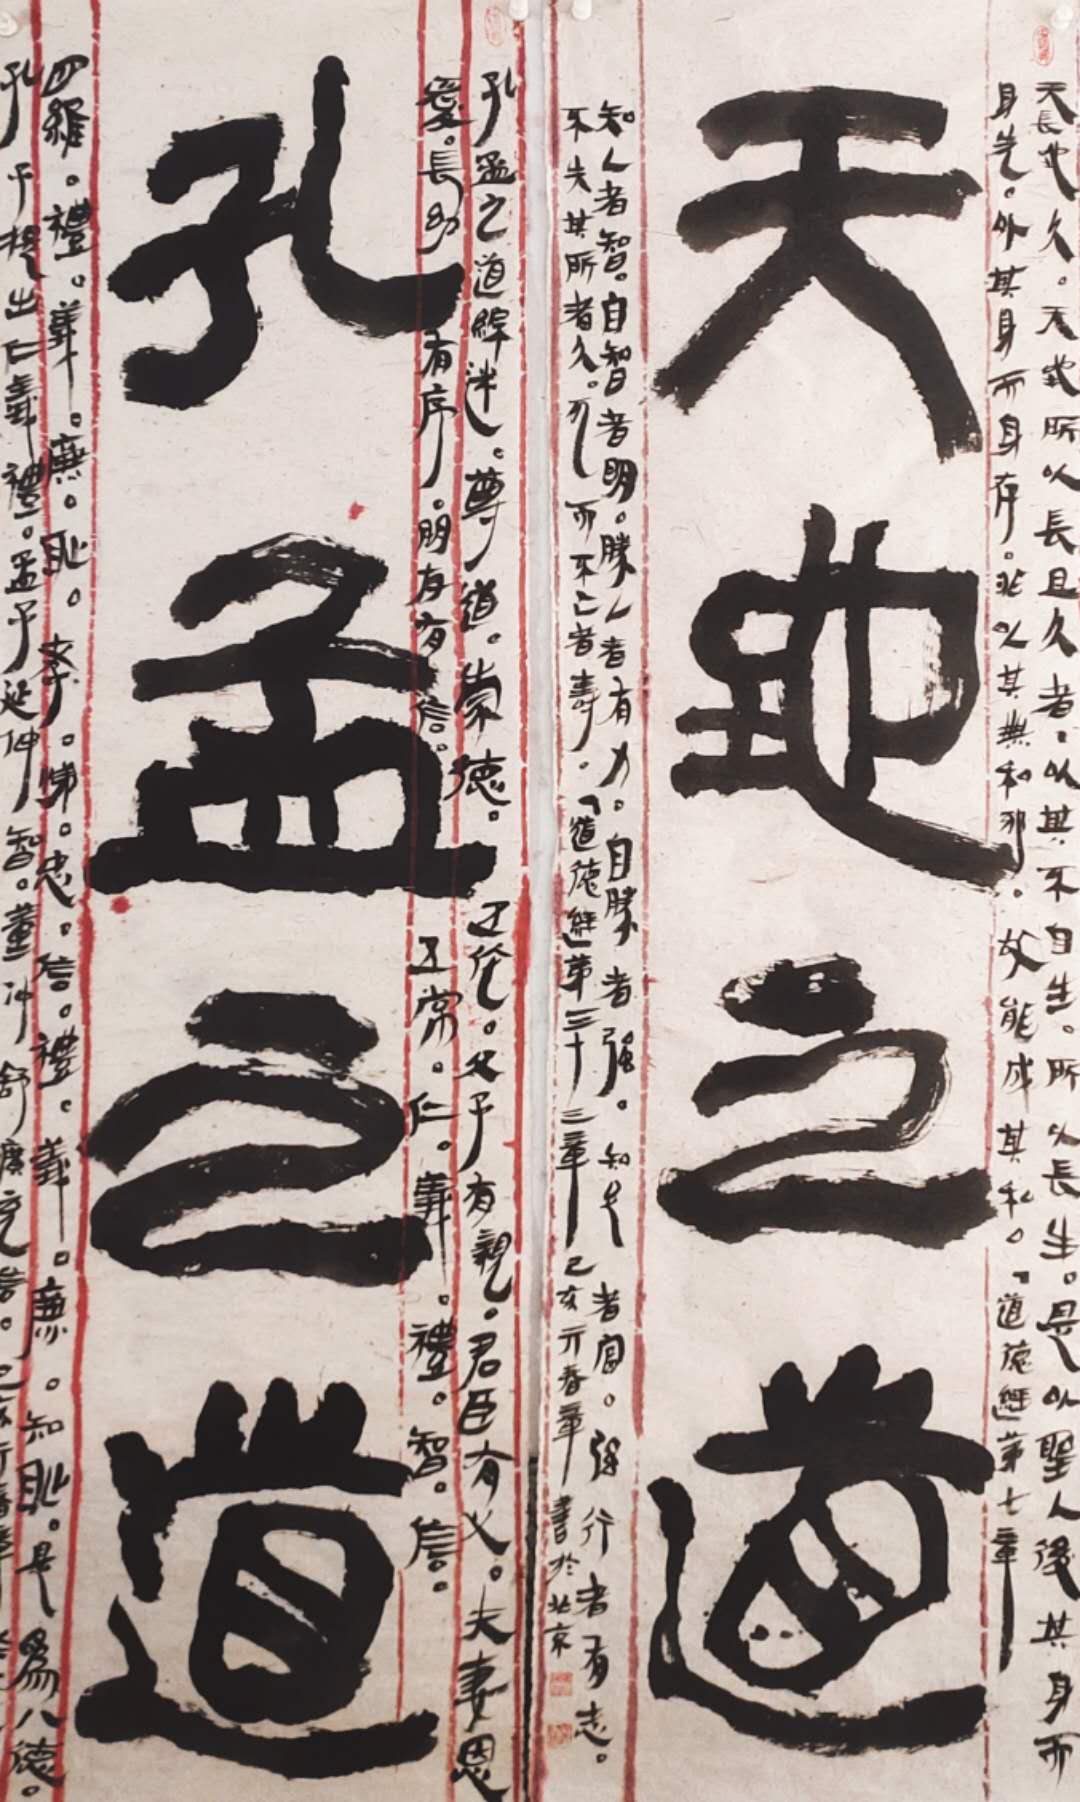 天長地久。天地所以長且久者。以其不自生。所以長生。是以聖人後其身而
身先。外其身而身存。非以其無私邪。故能成其私。「道德經」第七章
天地之道
知人者智。自智者明。勝人者有力。自勝者强。知足者富。强行者有志。
不失其所者久。死而不亡者壽。「道德經」第三十三章 己亥亓春章 書於北京
孔孟之道解迷。尊道。崇德。 五伦。父子有親。君臣有义。夫妻恩
愛。長幼有序。朋友有信。 五常。仁。義。禮。智。信。
孔孟之道
四維。禮。義。廉。恥。 孝。悌。忠。信。禮。義。廉。知恥。是為八德。
孔子提出仁義禮。孟子延伸智。董仲舒擴充信。己亥